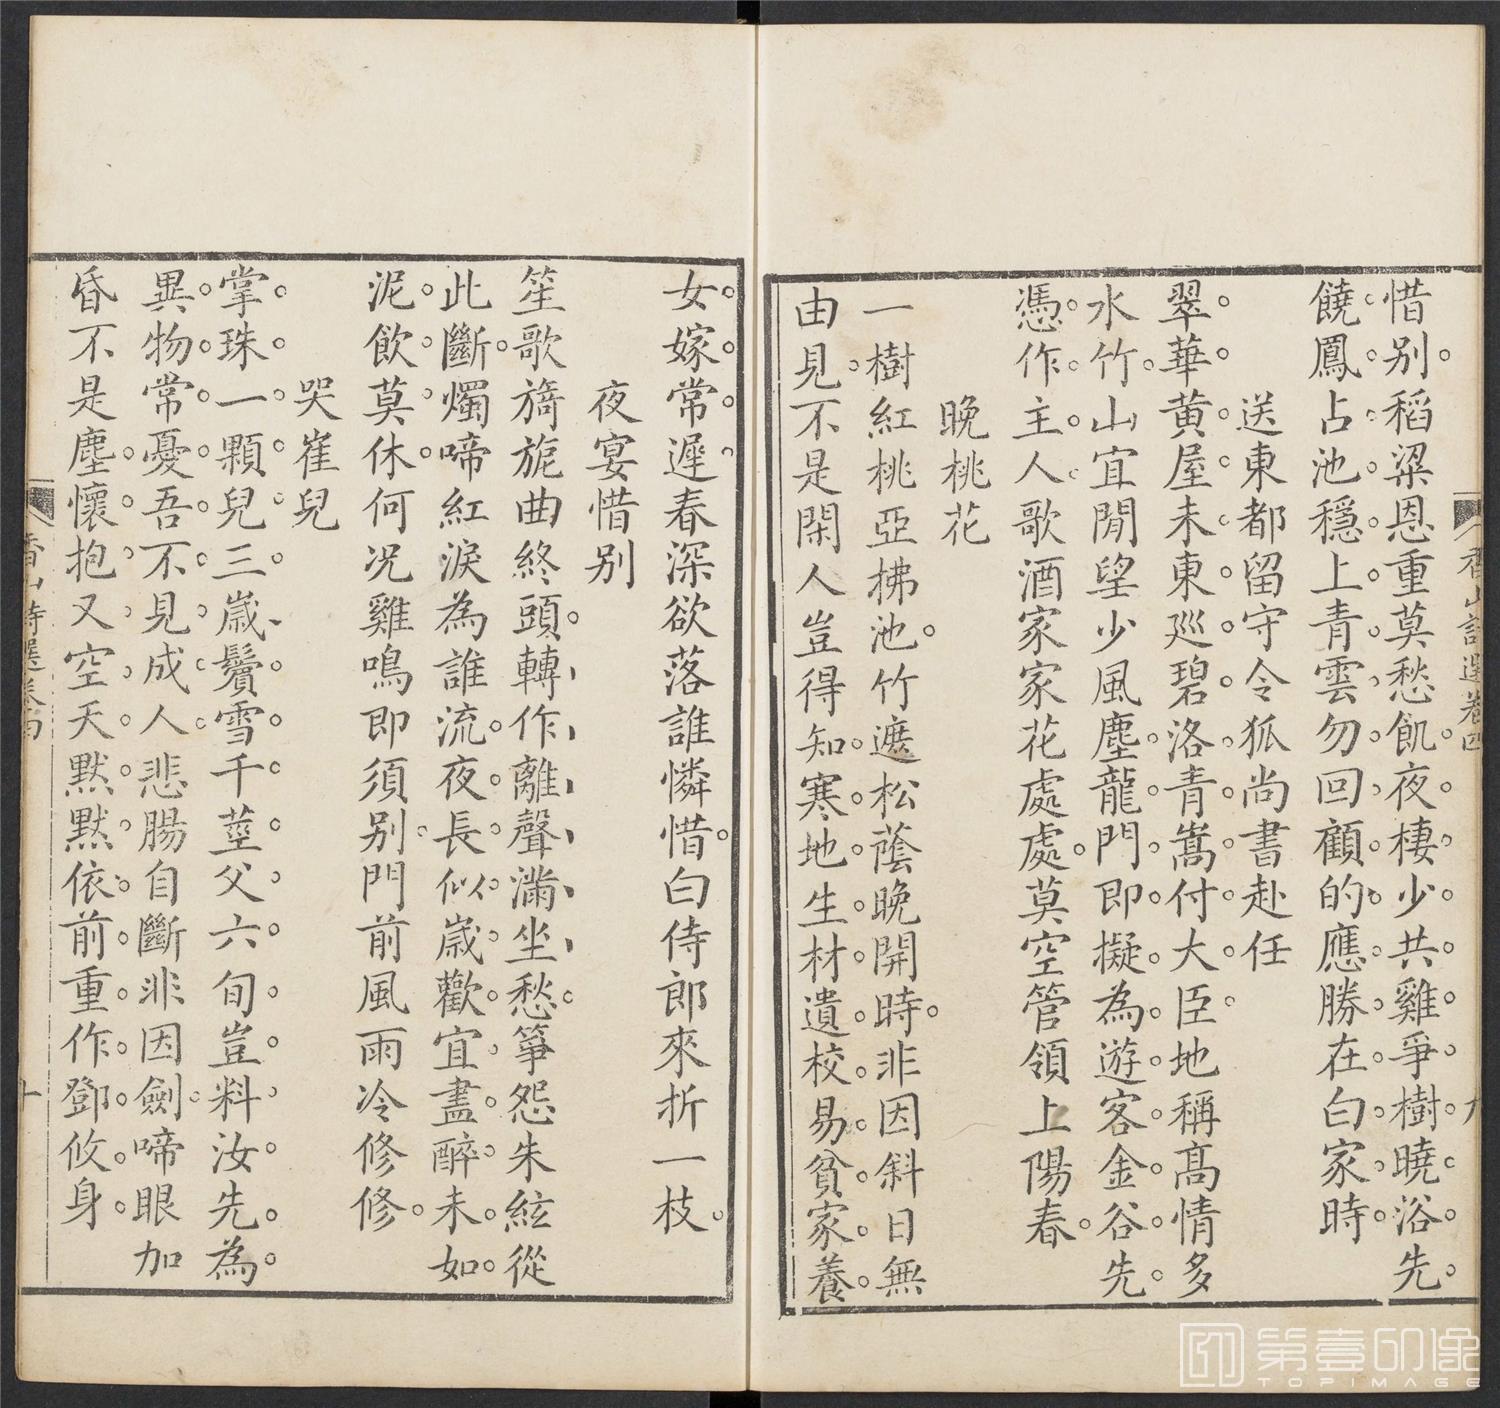 惜别稻粱恩重莫愁飢夜棲少共雞爭樹曉浴先
饒鳳占池穩上青雲勿回顧的應勝在白家時
送東都留守令狐尚書赴任
翠華黄屋未東巡碧洛青嵩付大臣地稱髙情多
水竹山宜閒望少風塵龍門即擬為遊客金谷先
憑作主人歌酒家家花處處莫空管領上陽春
晚桃花
一樹紅桃亞拂池竹遮松蔭晚開時非因斜日無
由見不是閑人豈得知寒地生材遺校易貧家養
女嫁常遲春深欲落誰憐惜白侍郎來折一枝
夜宴惜别
笙歌旖旎曲終頭轉作離聲滿坐愁箏怨朱絃從
此斷燭啼紅淚為誰流夜長似歲歡宜盡醉未如
泥飲莫休何况雞鳴即須别門前風雨冷修修
哭崔兒
掌珠一顆兒三歲鬢雪千莖父六旬豈料汝先為
異物常憂吾不見成人悲腸自斷非因劍啼眼加
昏不是塵懷抱又空天黙黙依前重作鄧攸身
香山詩選卷四
九
香山詩選卷四
十
第壹印像
TOPIMAGE